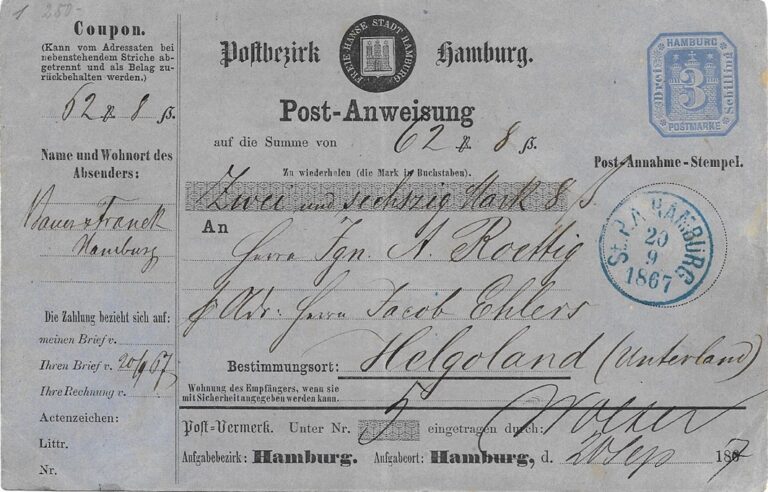 1 250-
Coupon.
(Kann vom Adressaten bei
nebenstehendem Striche ab-
getrennt und als Belag zu-
rückbehalten werden.)
62 ₰ 8 ß.
Name und Wohnort des
Absenders:
Bauer & Franck
Hamburg
Die Zahlung bezieht sich auf:
meinen Brief v.
Ihren Brief v. 20/9 67
Ihre Rechnung v.
Actenzeichen:
Littr.
Nr.
Postbezirk Hamburg.
FREIE HANSE STADT HAMBURG
Post-Anweisung
auf die Summe von 62 ₰ 8 ß.
Zu wiederholen (die Mark in Buchstaben).
Zwei und sechszig Mark 8 ß
An
Herrn Ign. A. Roettig
p Adr: Herrn Jacob Ehlers
Bestimmungsort: Helgoland (Unterland)
Wohnung des Empfängers, wenn sie
mit Sicherheit angegeben werden kann.
Post-Vermerk. Unter Nr. 5 eingetragen durch: Wolter
Aufgabebezirk: Hamburg. Aufgabeort: Hamburg, d. 20 Sep 1867
HAMBURG
Drei Schilling
3
POSTMARKE
Post-Annahme-Stempel.
St.P.A. HAMBURG
20
9
1867